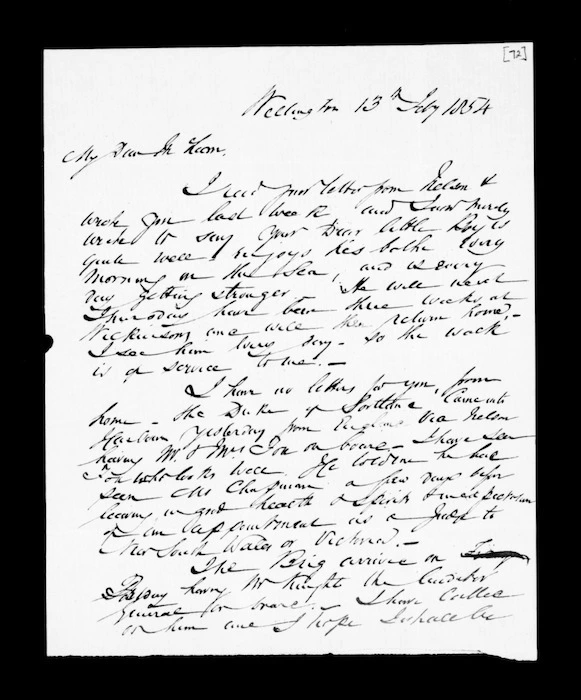 [72]
Wellington 13th Feby 1854
My Dear McLean,
I recd your letter from Nelson &
wrote you last week and I now merely
write to say your Dear little Boy is
quite well & enjoys his bathe every
morning in the Sea, and is every
day getting stronger. He will next
Thursday have been three weeks at
Wilkinsons and will then return home,
I see him every day. So the walk
is of service to me. —
I have no letters for you, from
home — The Duke of Portland Came into
Harbour yesterday from England via Nelson
having Mr. & Mrs Fox on board — I have seen
Fox who looks well. He told me he had
seen Mr Chapman a few days before
leaving in good health & spirits &
of an appointment as a Judge to
New South Wales or Victoria. —
The Brig arrived on
Friday having Dr Knight the Auditor
General on board. I have Called
on him and I hope I shall be